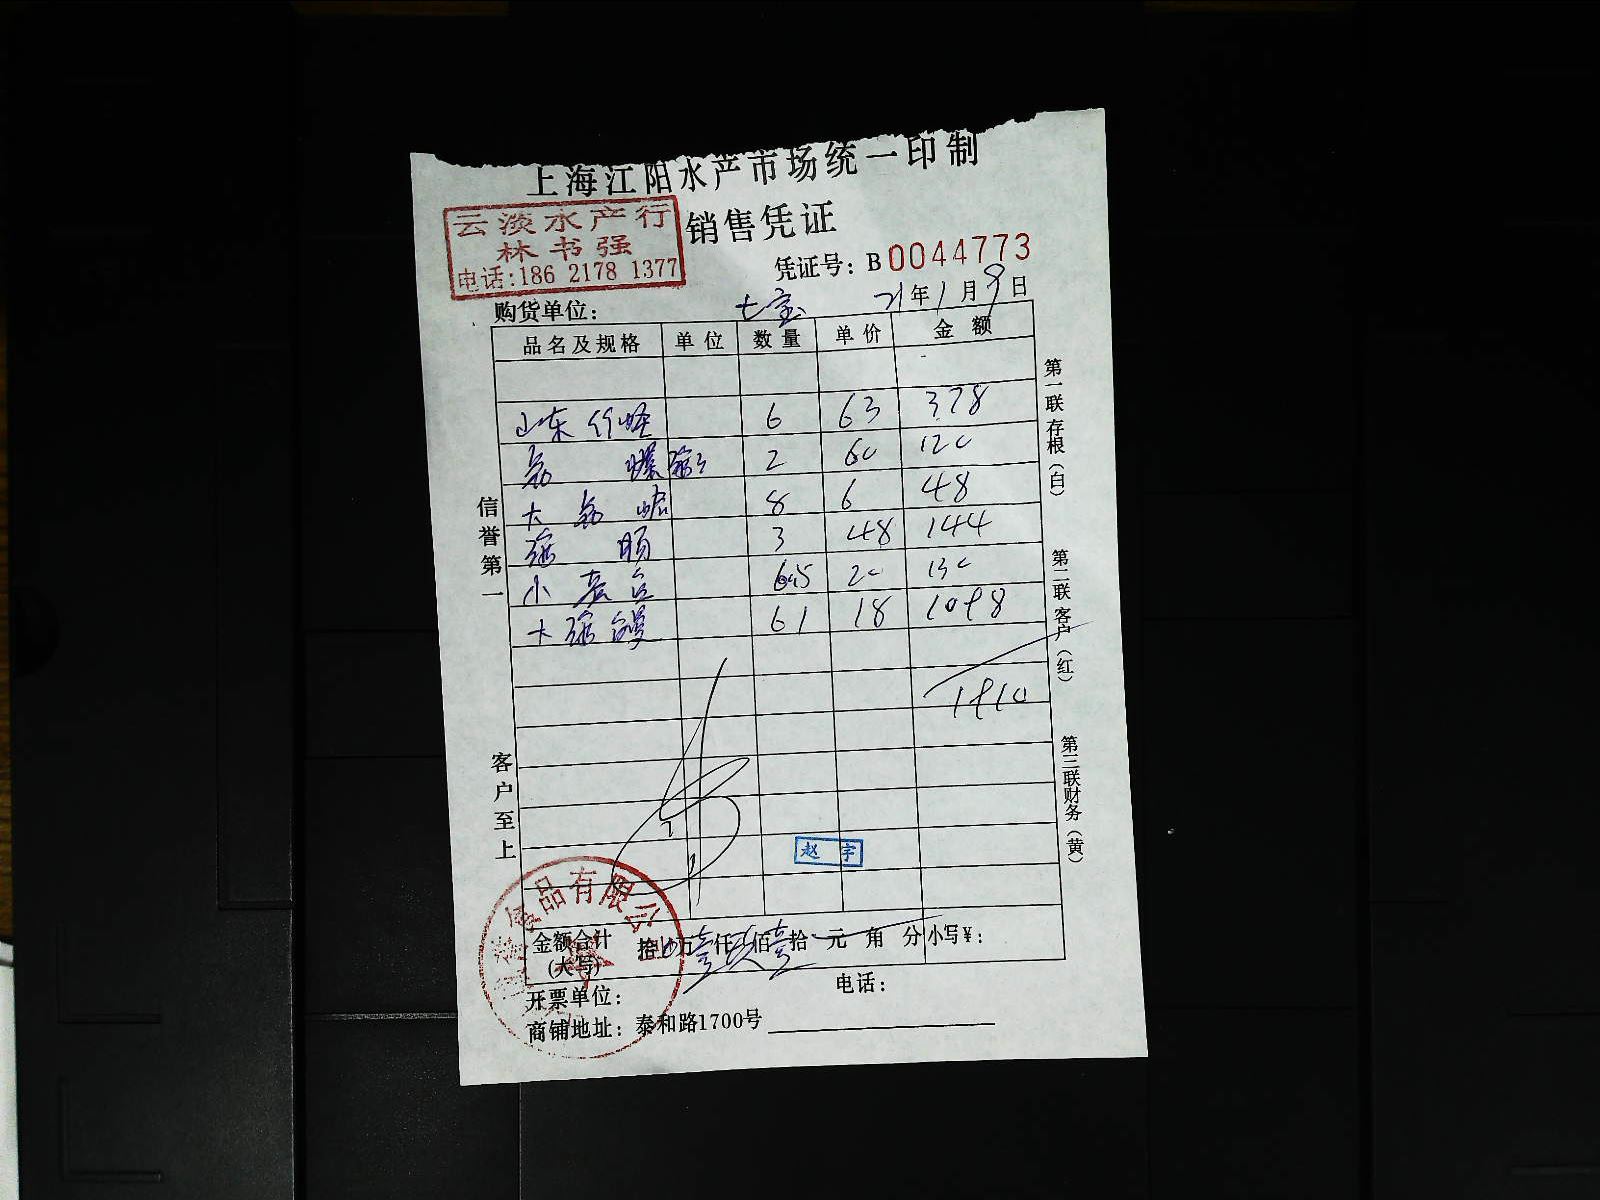 上海江阳水产市场统一印制
销售凭证
云淡水产行
林书强
电话:186 2178 1377
凭证号: B0044773
购货单位: 七宝 21年1月9日
品名及规格 单位 数量 单价 金额
山东 6 63 378
2 60 120
大 8 6 48
3 48 144
小 6.5 20 130
大 61 18 1098
1910
信誉第一
客户至上
第一联存根(白)
第二联客户(红)
第三联财务(黄)
赵宇
食品有限公司
金额合计(大写) 拾 万 壹仟 玖佰 壹拾 元 角 分 小写¥:
开票单位: 电话:
商铺地址: 泰和路1700号